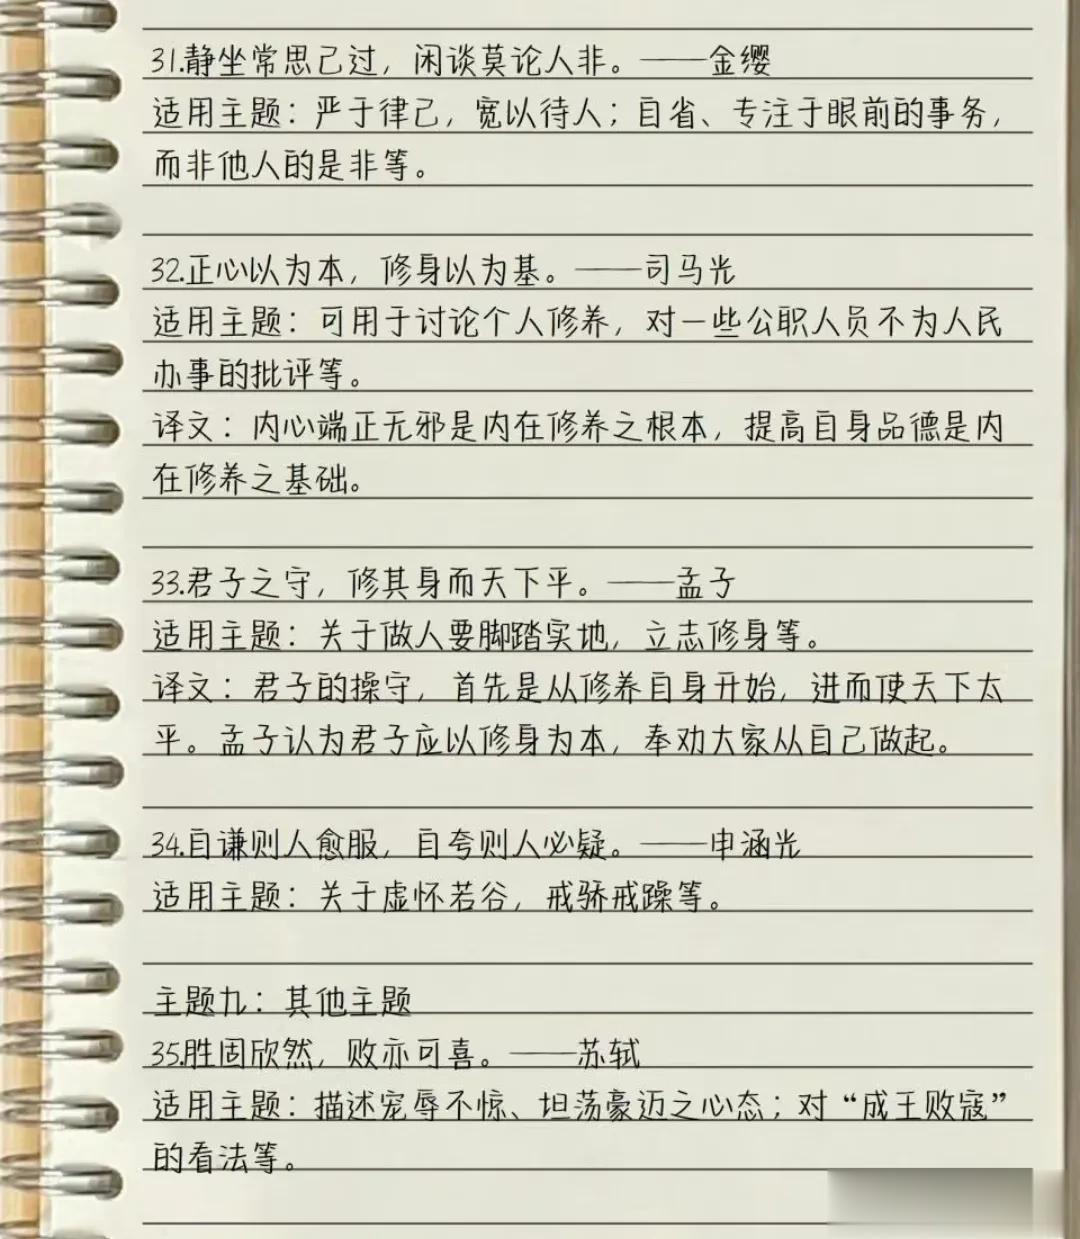 31.静坐常思己过，闲谈莫论人非。——金缨
适用主题：严于律己，宽以待人；自省、专注于眼前的事务，
而非他人的是非等。
32.正心以为本，修身以为基。——司马光
适用主题：可用于讨论个人修养，对一些公职人员不为人民
办事的批评等。
译文：内心端正无邪是内在修养之根本，提高自身品德是内
在修养之基础。
33.君子之守，修其身而天下平。——孟子
适用主题：关于做人要脚踏实地，立志修身等。
译文：君子的操守，首先是从修养自身开始，进而使天下太
平。孟子认为君子应以修身为本，奉劝大家从自己做起。
34.自谦则人愈服，自夸则人必疑。——申涵光
适用主题：关于虚怀若谷，戒骄戒躁等。
主题九：其他主题
35.胜固欣然，败亦可喜。——苏轼
适用主题：描述宠辱不惊、坦荡豪迈之心态；对“成王败寇”
的看法等。